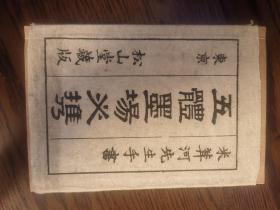 米葊河先生手書
五體墨場必携
東京 松山堂藏版